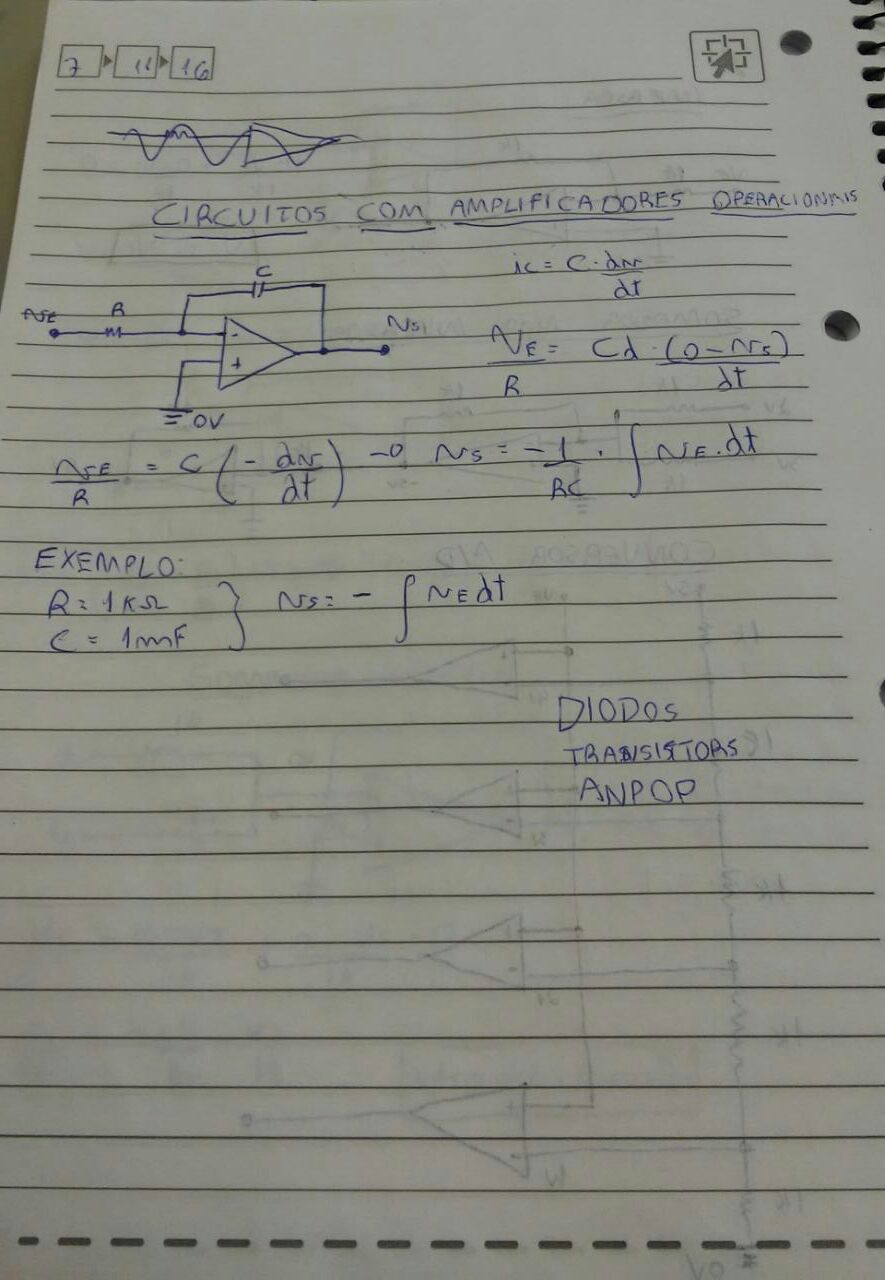 7 11 16
CIRCUITOS COM AMPLIFICADORES OPERACIONAIS
ic = C · dv/dt
C
vE R
- vs
+
0V
vE/R = C d · (0 - vs)/dt
vE/R = C (- dv/dt) → vs = -1/RC · ∫ vE · dt
EXEMPLO:
R = 1KΩ
C = 1mF
} vs = - ∫ vE dt
DIODOS
TRANSISTORS
ANPOP